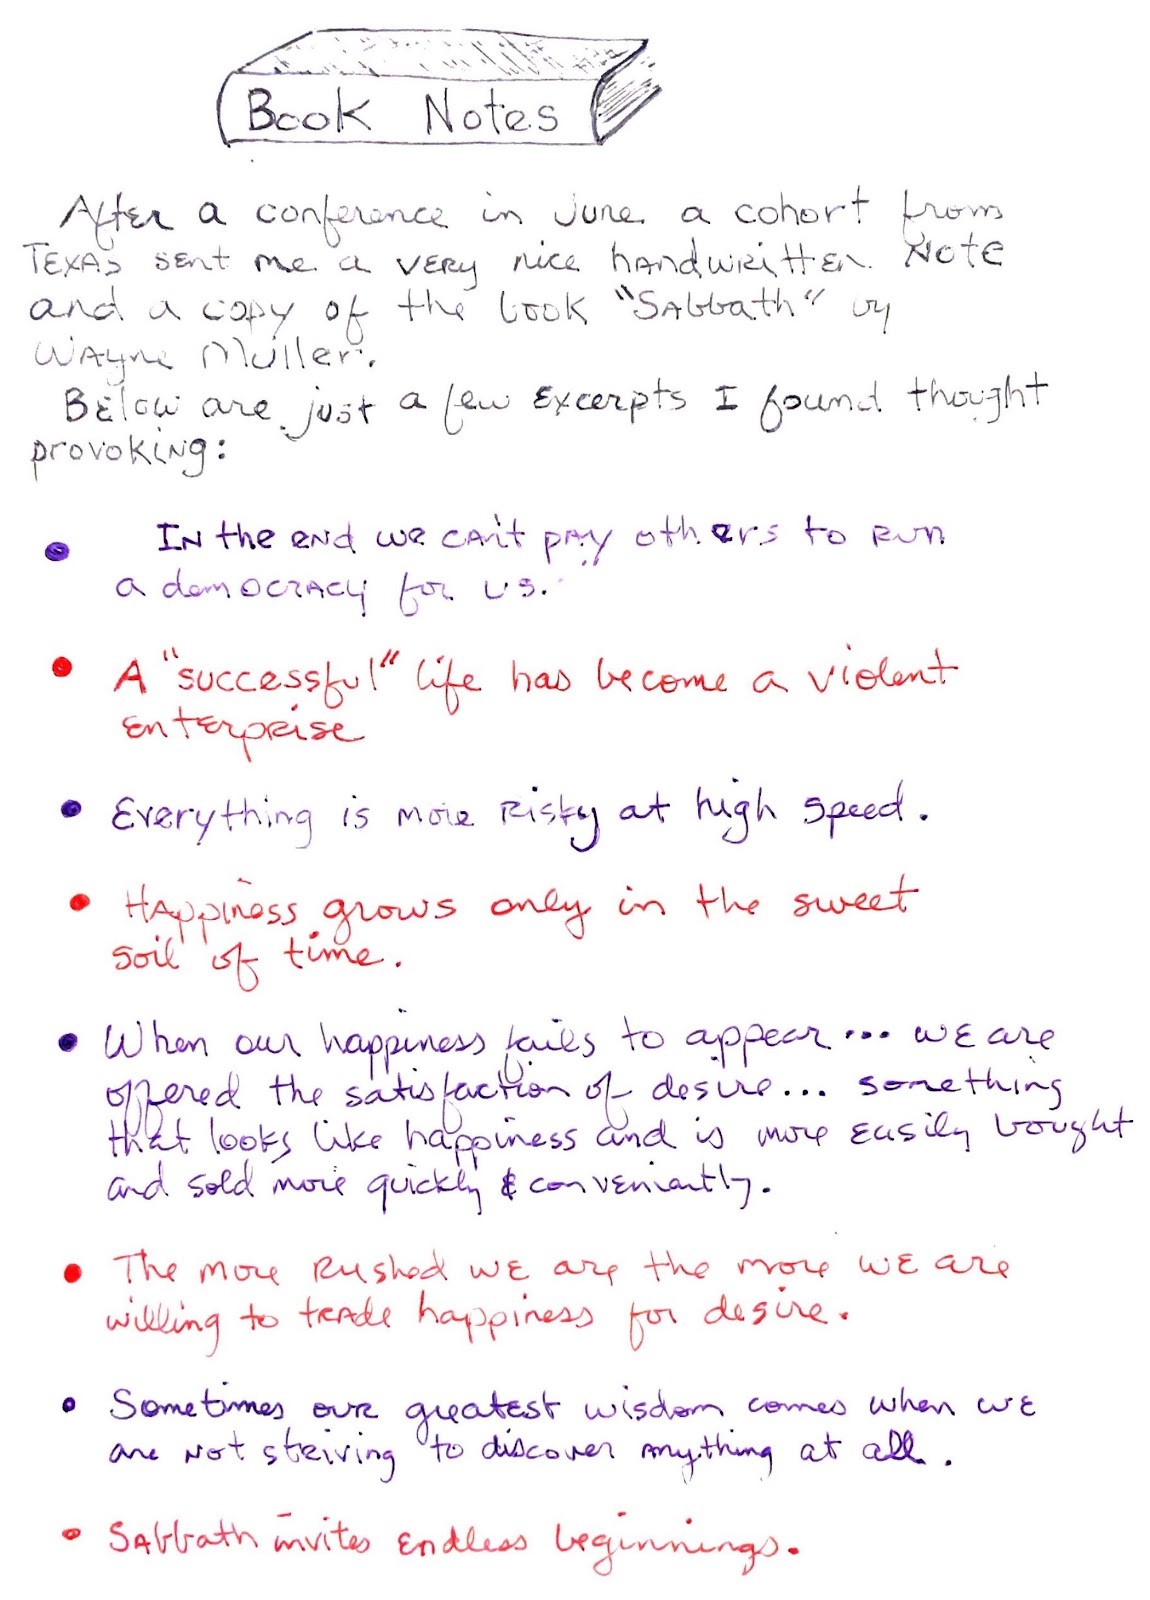 Book Notes
After a conference in June a cohort from
Texas sent me a very nice handwritten Note
and a copy of the book "Sabbath" by
Wayne Muller.
Below are just a few excerpts I found thought
provoking:
• In the end we can't pay others to run
a democracy for us.
• A "successful" life has become a violent
enterprise
• Everything is more risky at high speed.
• Happiness grows only in the sweet
soil of time.
• When our happiness fails to appear... we are
offered the satisfaction of desire... something
that looks like happiness and is more easily bought
and sold more quickly & conveniently.
• The more rushed we are the more we are
willing to trade happiness for desire.
• Sometimes our greatest wisdom comes when we
are not striving to discover anything at all.
• Sabbath invites endless beginnings.